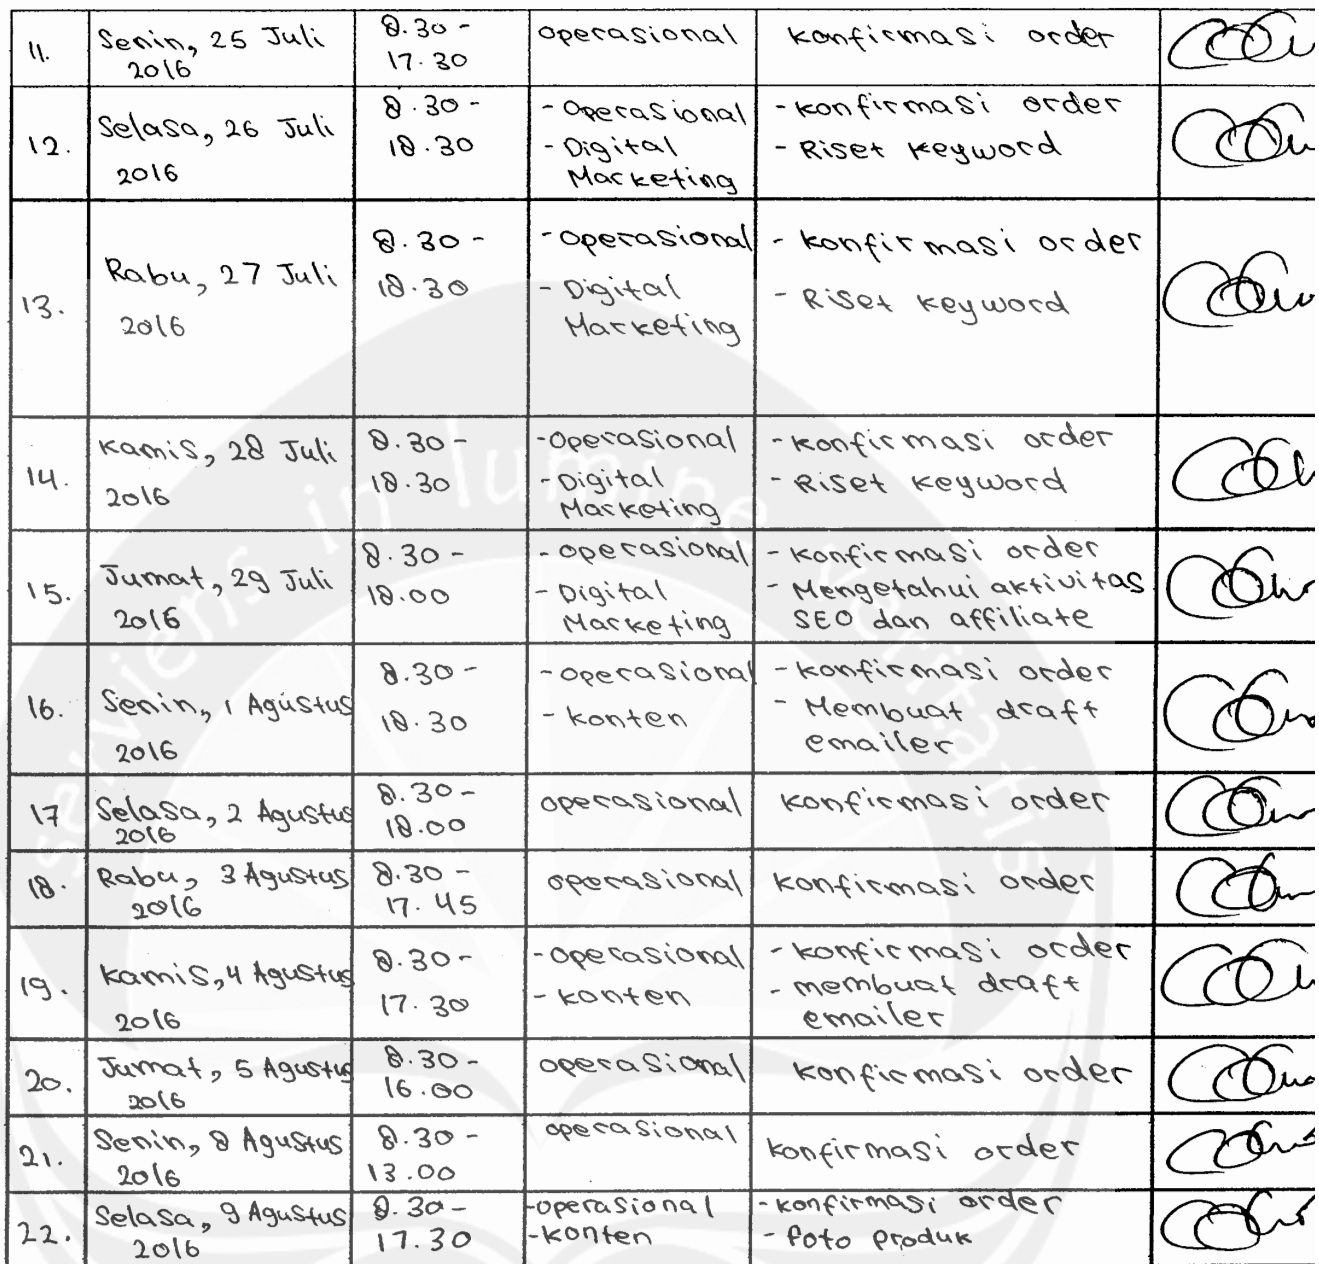 11. Senin, 25 Juli 2016 8.30 - 17.30 operasional konfirmasi order
12. Selasa, 26 Juli 2016 8.30 - 18.30 - operasional - Digital Marketing - konfirmasi order - Riset keyword
13. Rabu, 27 Juli 2016 8.30 - 18.30 - operasional - Digital Marketing - konfirmasi order - Riset keyword
14. Kamis, 28 Juli 2016 8.30 - 18.30 - operasional - Digital Marketing - konfirmasi order - Riset keyword
15. Jumat, 29 Juli 2016 8.30 - 18.00 - operasional - Digital Marketing - konfirmasi order - Mengetahui aktivitas SEO dan affiliate
16. Senin, 1 Agustus 2016 8.30 - 18.30 - operasional - konten - konfirmasi order - Membuat draft emailer
17 Selasa, 2 Agustus 2016 8.30 - 18.00 operasional konfirmasi order
18. Rabu, 3 Agustus 2016 8.30 - 17.45 operasional konfirmasi order
19. Kamis, 4 Agustus 2016 8.30 - 17.30 - operasional - konten - konfirmasi order - membuat draft emailer
20. Jumat, 5 Agustus 2016 8.30 - 16.00 operasional konfirmasi order
21. Senin, 8 Agustus 2016 8.30 - 13.00 operasional konfirmasi order
22. Selasa, 9 Agustus 2016 8.30 - 17.30 - operasional - konten - konfirmasi order - foto produk
serviens in lumine veritatis